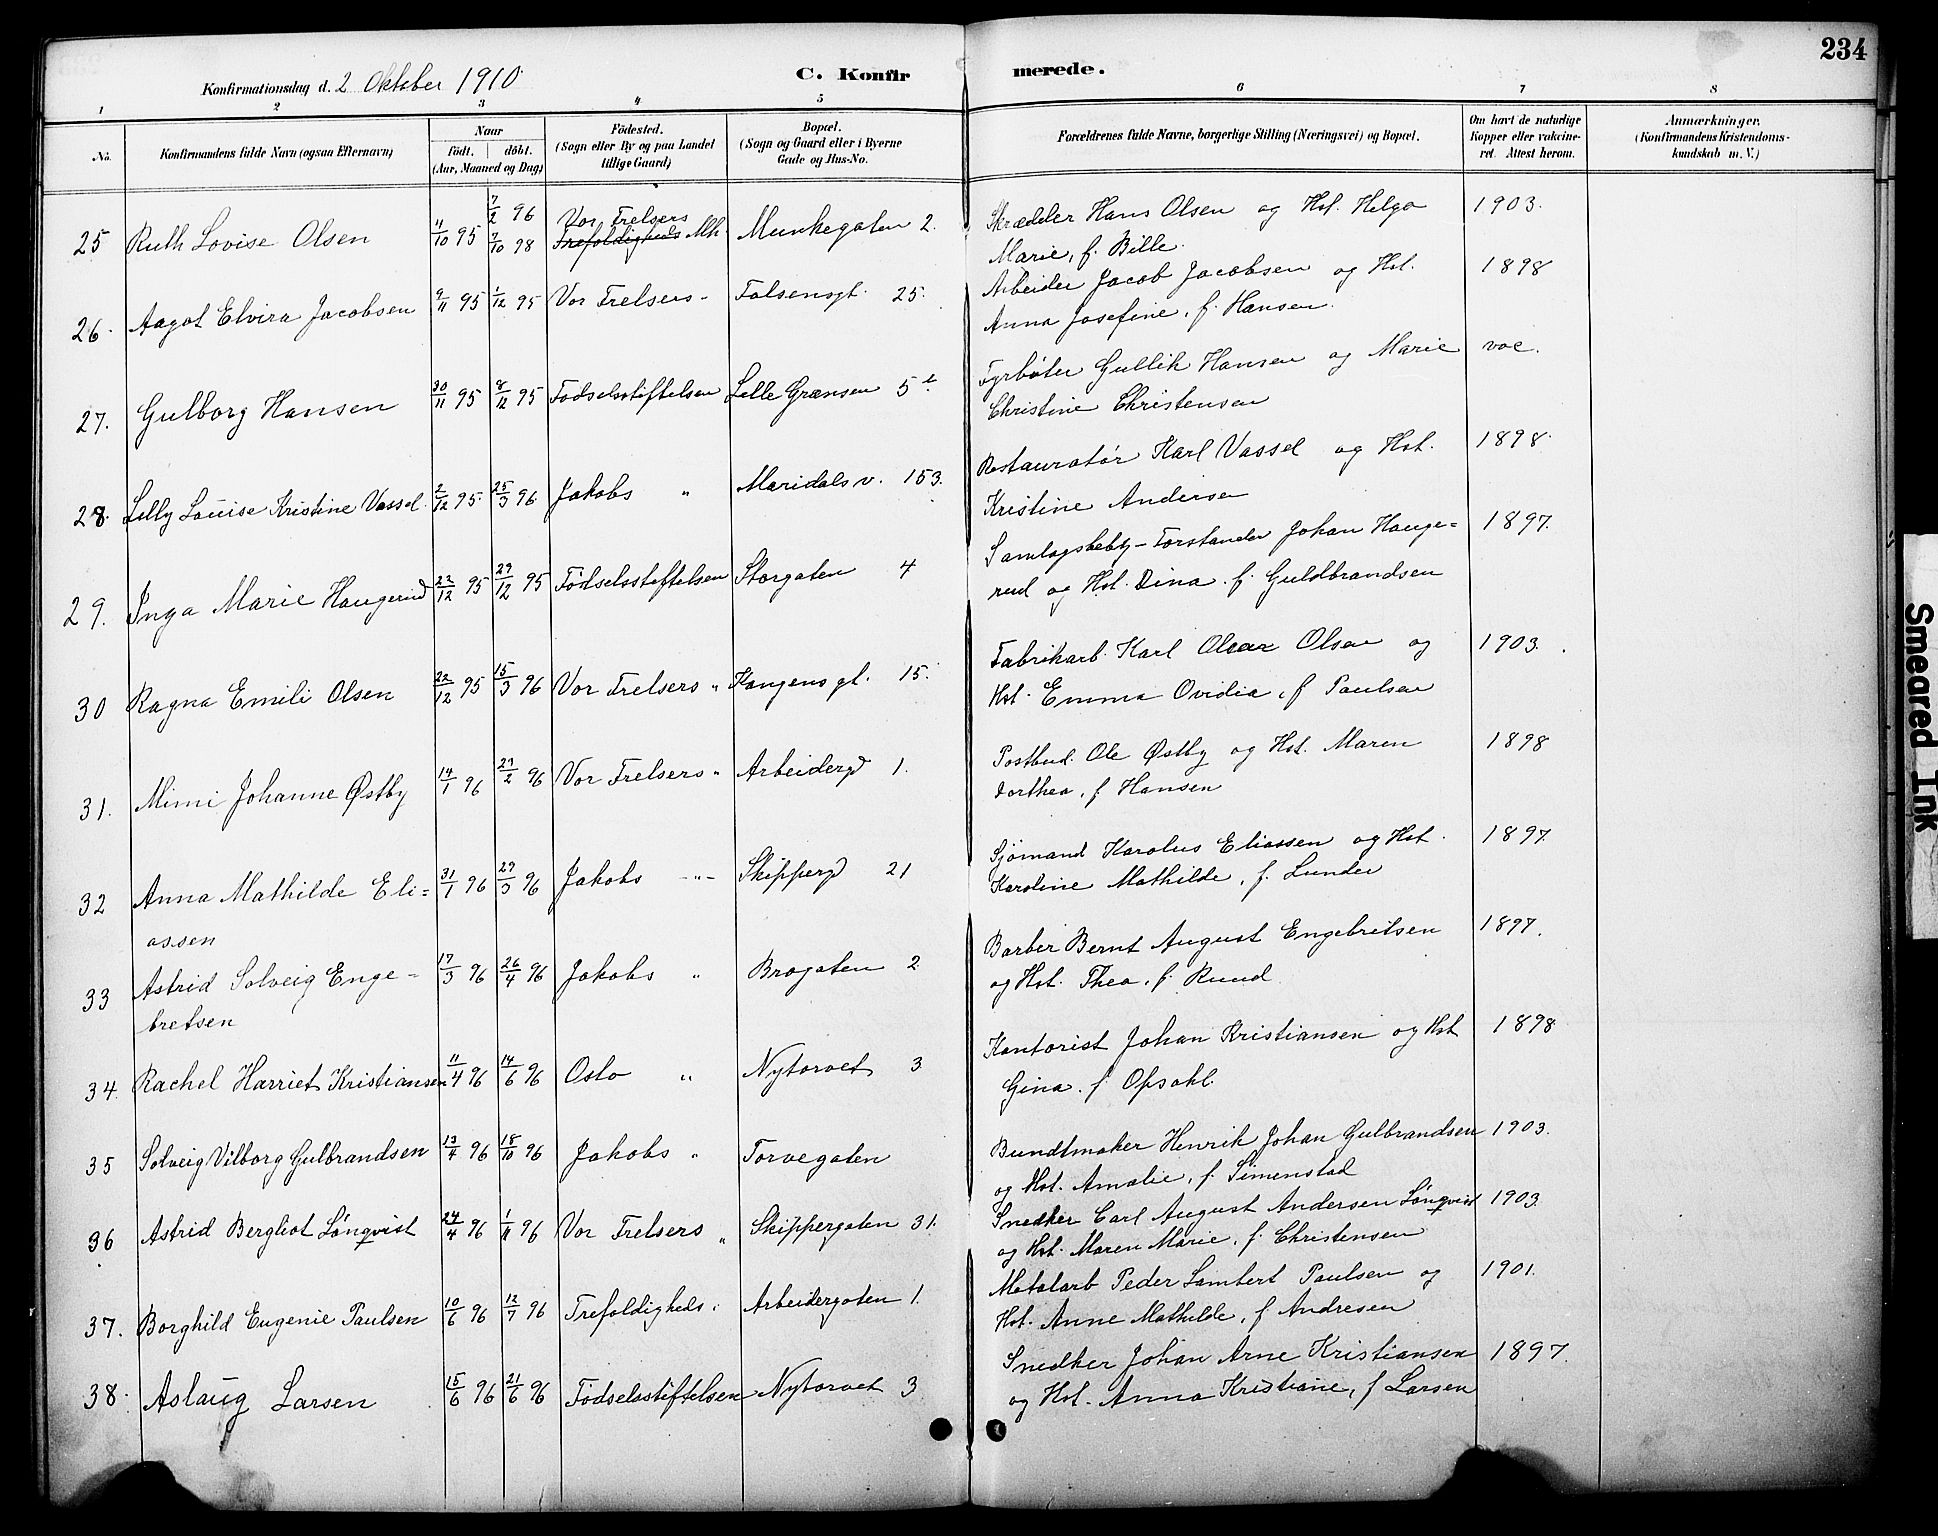 234
Konfirmationsdag d. 2 Oktober 1910.
C. Konfirmerede.
1 2 3 4 5 6 7 8
No.
Konfirmandens fulde Navn (ogsaa Efternavn)
Naar
født. døbt.
(Aar, Maaned og Dag)
Födested.
(Sogn eller By og paa Landet
tillige Gaard)
Bopæl.
(Sogn og Gaard eller i Byerne
Gade og Hus-No.
Forældrenes fulde Navne, borgerlige Stilling (Næringsvei) og Bopæl.
Om havt de naturlige
Kopper eller vakcine-
ret. Attest herom.
Anmærkninger.
(Konfirmandens Kristendoms-
kundskab m. V.)
25 Ruth Lovise Olsen 4/10 95 7/2 96 7/10 98 Vor Frelsers Trefoldigheds Mh. Munkegaten 2. Skrædder Hans Olsen og Hst. Helga 1903.
Marie, f. Bille.
26. Aagot Elvira Jacobsen 9/11 95 1/12 95 Vor Frelsers - Falsensgt. 25. Arbeider Jacob Jacobsen og Hst. 1898
Anna Josefine, f. Hansen.
27. Gulborg Hansen 30/11 95 8/12 95 Fødselsstiftelsen Lille Grænsen 5 Fyrbøter Gullik Hansen og Marie vac.
Christine Christensen
28. Lilly Louise Kristine Vassel. 2/12 95 25/3 96 Jakobs " Maridalsv. 153. Restauratør Karl Vassel og Hst. 1898.
Kristine Andersen
29. Inga Marie Haugerud 22/12 95 29/12 95 Födselsstiftelsen Storgaten 4 Samlagsbeby-Forstander Johan Hauge= 1897.
rud og Hst. Dina f. Guldbrandsen
30 Ragna Emili Olsen 22/12 95 15/3 96 Vor Frelsers " Kongensgt. 15. Fabrikarb. Karl Oscar Olsen og 1903.
Hst. Emma Ovidia, f Paulsen
31. Mimi Johanne Østby 14/1 96 29/2 96 Vor Frelsers " Arbeidergd 1. Postbud. Ole Østby og Hst. Maren 1898
Dorthea, f. Hansen
32 Anna Mathilde Eli= 31/1 96 29/3 96 Jakobs -"- Skippergd 21 Sjømand Karolus Eliassen og Hst. 1897.
assen Karoline Mathilde, f. Lunder
33 Astrid Solveig Enge= 17/3 96 26/4 96 Jakobs " Brogaten 2 Barber Bernt August Engebretsen 1897.
bretsen og Hst. Thea, f. Ruud
34. Rachel Harriet Kristiansen 11/4 96 14/6 96 Oslo " Nytorvet 3 Kontorist Johan Kristiansen og Hst 1898
Gina. f. Opsahl.
35 Solveig Vilborg Gulbrandsen 13/4 96 18/10 96 Jakobs " Torvegaten Bundtmaker Henrik Johan Gulbrandsen 1903.
og Hst. Amalie, f. Simenstad
36 Astrid Bergliot Lönqvist 24/4 96 1/11 96 Vor Frelsers " Skippergaten 31. Snedker Carl August Andersen Lönqvist 1903.
og Hst. Maren Marie, f. Christensen
37. Borghild Eugenie Paulsen 10/6 96 12/7 96 Trefoldigheds " Arbeidergaten 1. Metalarb Peder Lambert Paulsen og 1901.
Hst. Anne Mathilde, f Andresen
38. Aslaug Larsen 15/6 96 21/6 96 Fødselsstiftelsen Nytorvet 3 Snedker Johan Arne Kristiansen 1897.
og Hst. Anna Kristiane, f Larsen
Smeared Ink